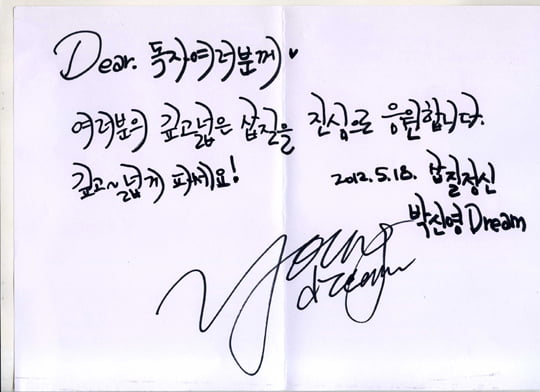 Dear. 독자여러분께 ♥
여러분의 깊고넓은 삽질을 진심으로 응원합니다.
깊고~넓게 파세요!
2012.5.18. 삽질정신
박신영 Dream
Young
dream